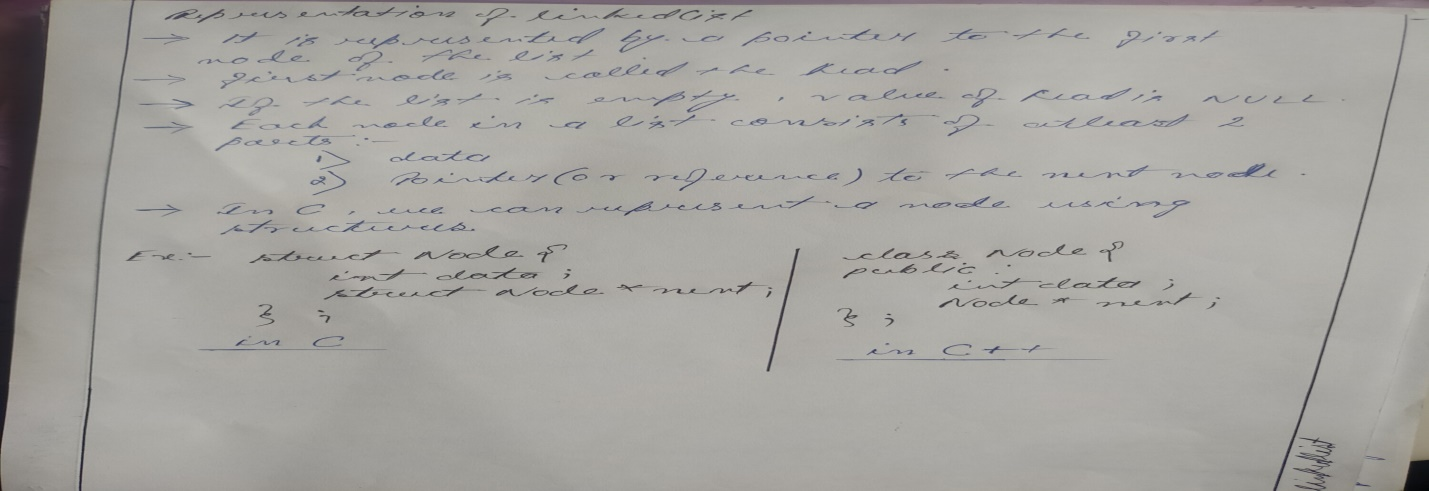 Representation of linked list
→ It is represented by a pointer to the first
node of the list
→ first node is called the head.
→ If the list is empty, value of head is NULL.
→ Each node in a list consists of atleast 2
parts :-
1) data
2) Pointer (or reference) to the next node.
→ In C, we can represent a node using
structures.
Ex:- struct Node {
int data ;
struct Node * next ;
} ;
in C
class Node {
public :
int data ;
Node * next ;
} ;
in C++
linkedlist